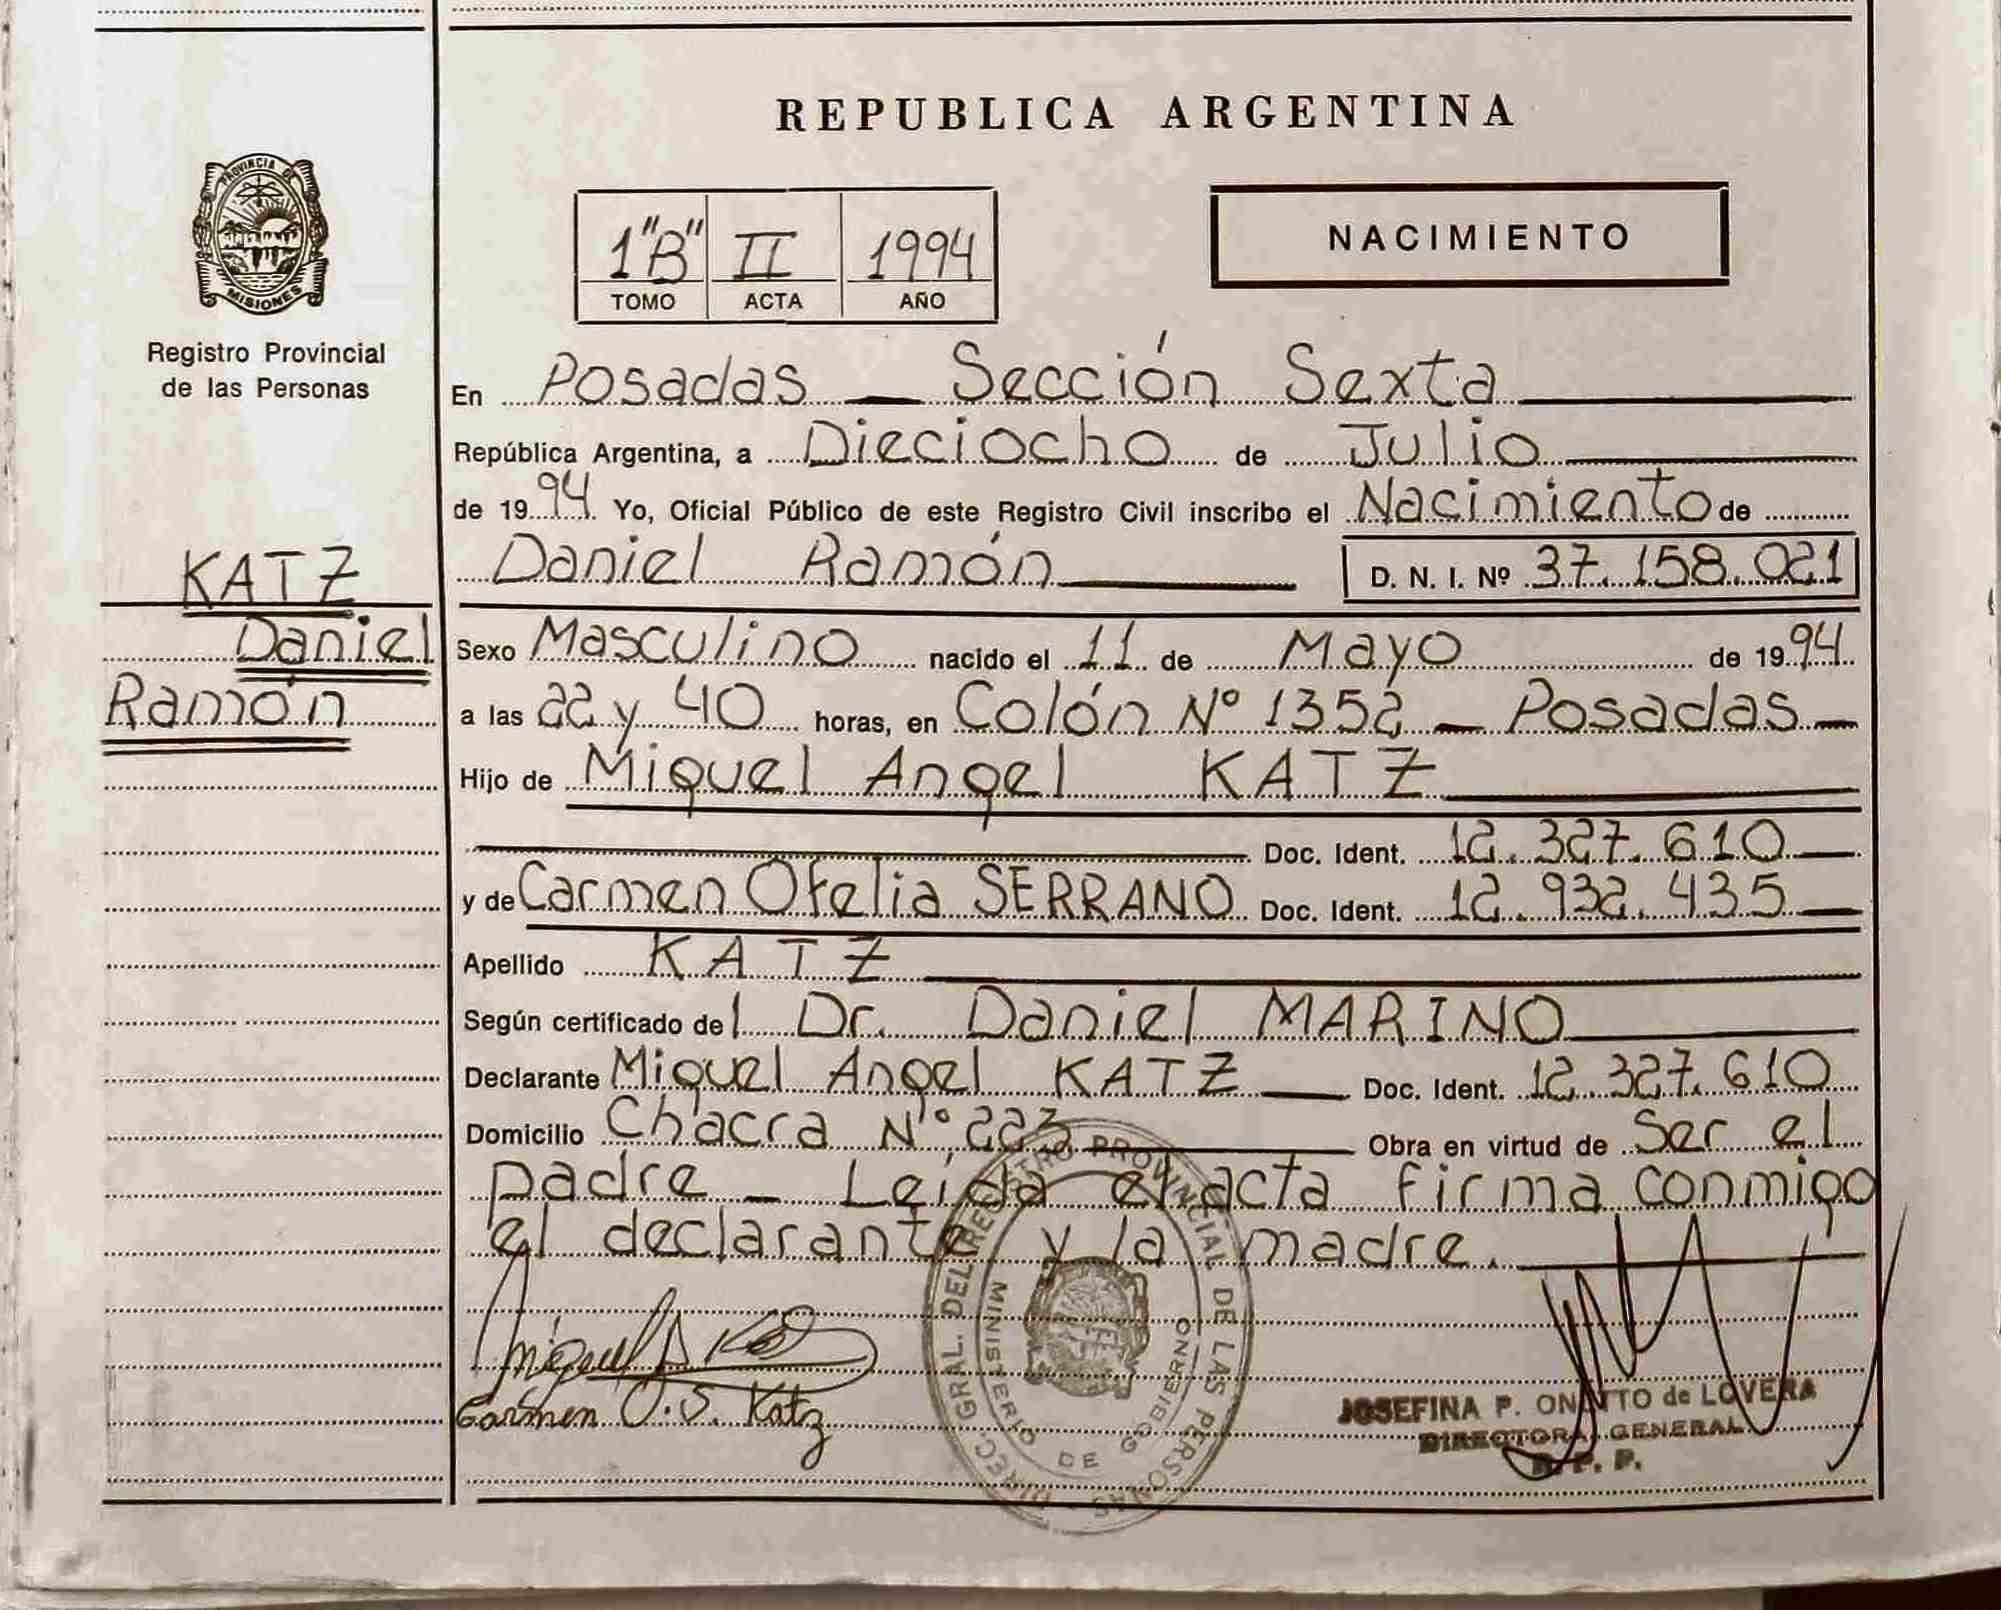 REPUBLICA ARGENTINA
PROVINCIA DE
MISIONES
Registro Provincial
de las Personas
1"B" II 1994
TOMO ACTA AÑO
NACIMIENTO
En Posadas — Sección Sexta
República Argentina, a Dieciocho de Julio
de 1994 Yo, Oficial Público de este Registro Civil inscribo el Nacimiento de
Daniel Ramón D. N. I. Nº 37.158.021
KATZ
Daniel
Ramón
Sexo Masculino nacido el 11 de Mayo de 1994
a las 22 y 40 horas, en Colón Nº 1352 — Posadas —
Hijo de Miguel Angel KATZ
Doc. Ident. 12.327.610
y de Carmen Ofelia SERRANO Doc. Ident. 12.932.435
Apellido KATZ
Según certificado del Dr. Daniel MARINO
Declarante Miguel Angel KATZ Doc. Ident. 12.327.610
Domicilio Chacra Nº 223 Obra en virtud de Ser el
padre — Leída el acta firma conmigo
el declarante y la madre.
Miguel A Katz
Carmen O. S. Katz
DIREC. GRAL. DEL REGISTRO PROVINCIAL DE LAS PERSONAS
MINISTERIO DE GOBIERNO
JOSEFINA P. de LOVERA
DIRECTORA GENERAL
R. P. P.